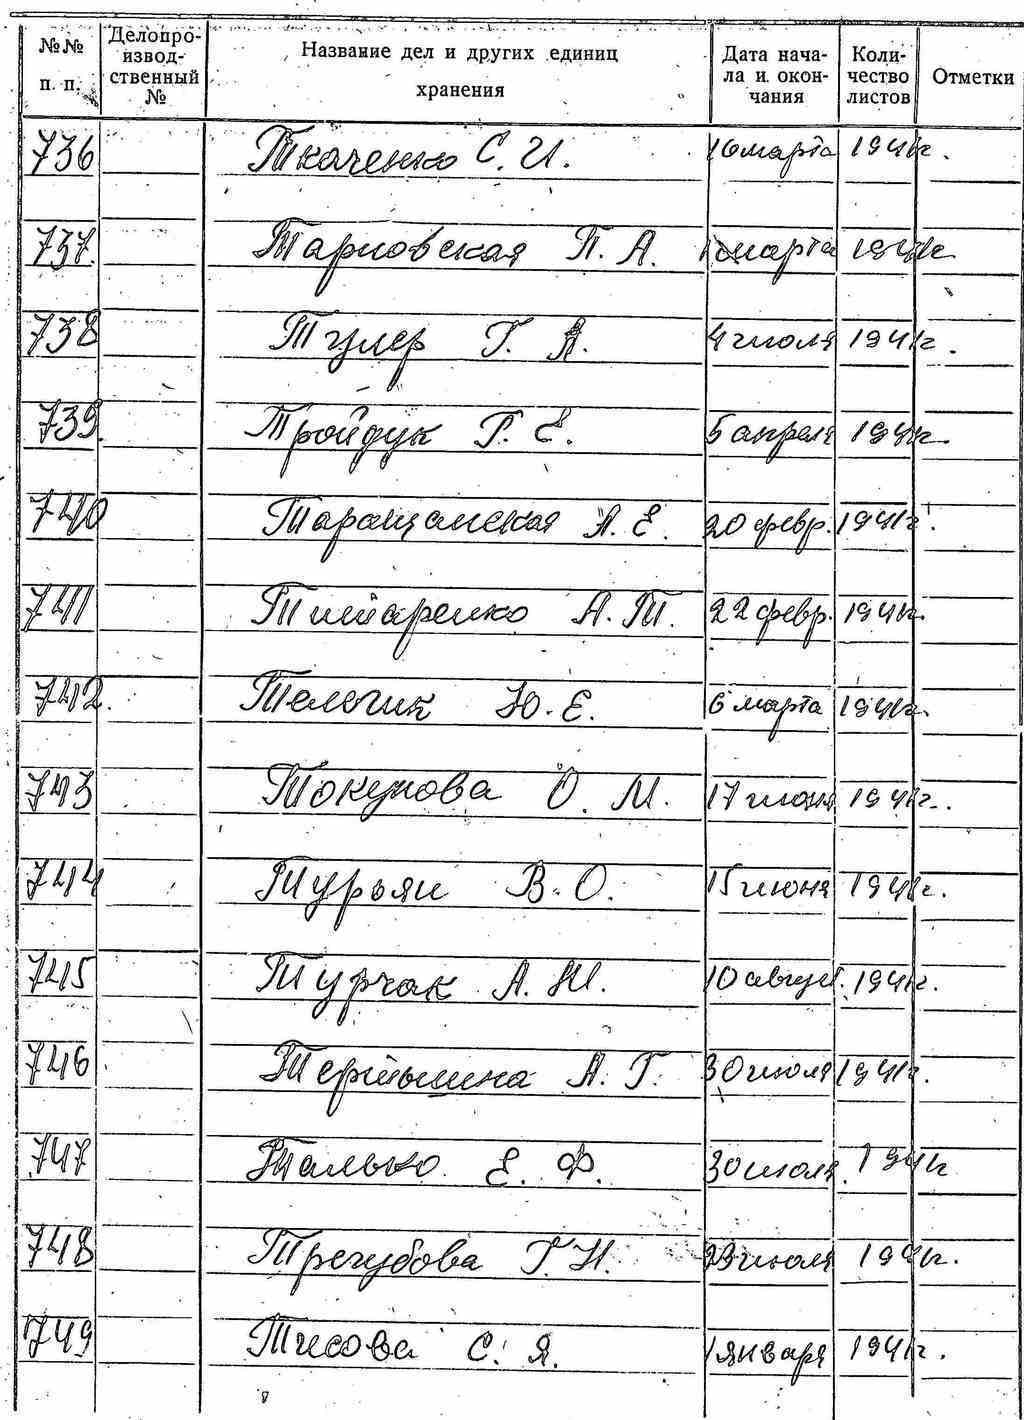 №№ п. п. Делопроизвод-ственный № Название дел и других единиц хранения Дата нача-ла и окон-чания Коли-чество листов Отметки
736 Ткаченко С. И. 16 марта 1941г.
737. Тарновская П. А. марта 1941г.
738 Тулер Г. Я. 4 июля 1941г.
739. Тройдук Г. Е. 5 апреля 1941г.
740 Таращанская А. Е. 20 февр. 1941г.
741 Титаренко А. Т. 22 февр. 1941г.
742. Тельчик Ю. Е. 6 марта 1941г.
743 Токунова О. М. 17 июня 1941г.
744 Турьян В. О. 15 июня 1941г.
745 Турчак А. М. 10 август. 1941г.
746 Тертышина А. Г. 30 июля 1941г.
747 Талько Е. Ф. 30 июля 1941г.
748 Трегубова Г. Н. 23 июля 1941г.
749 Тисова С. Я. 1 января 1941г.